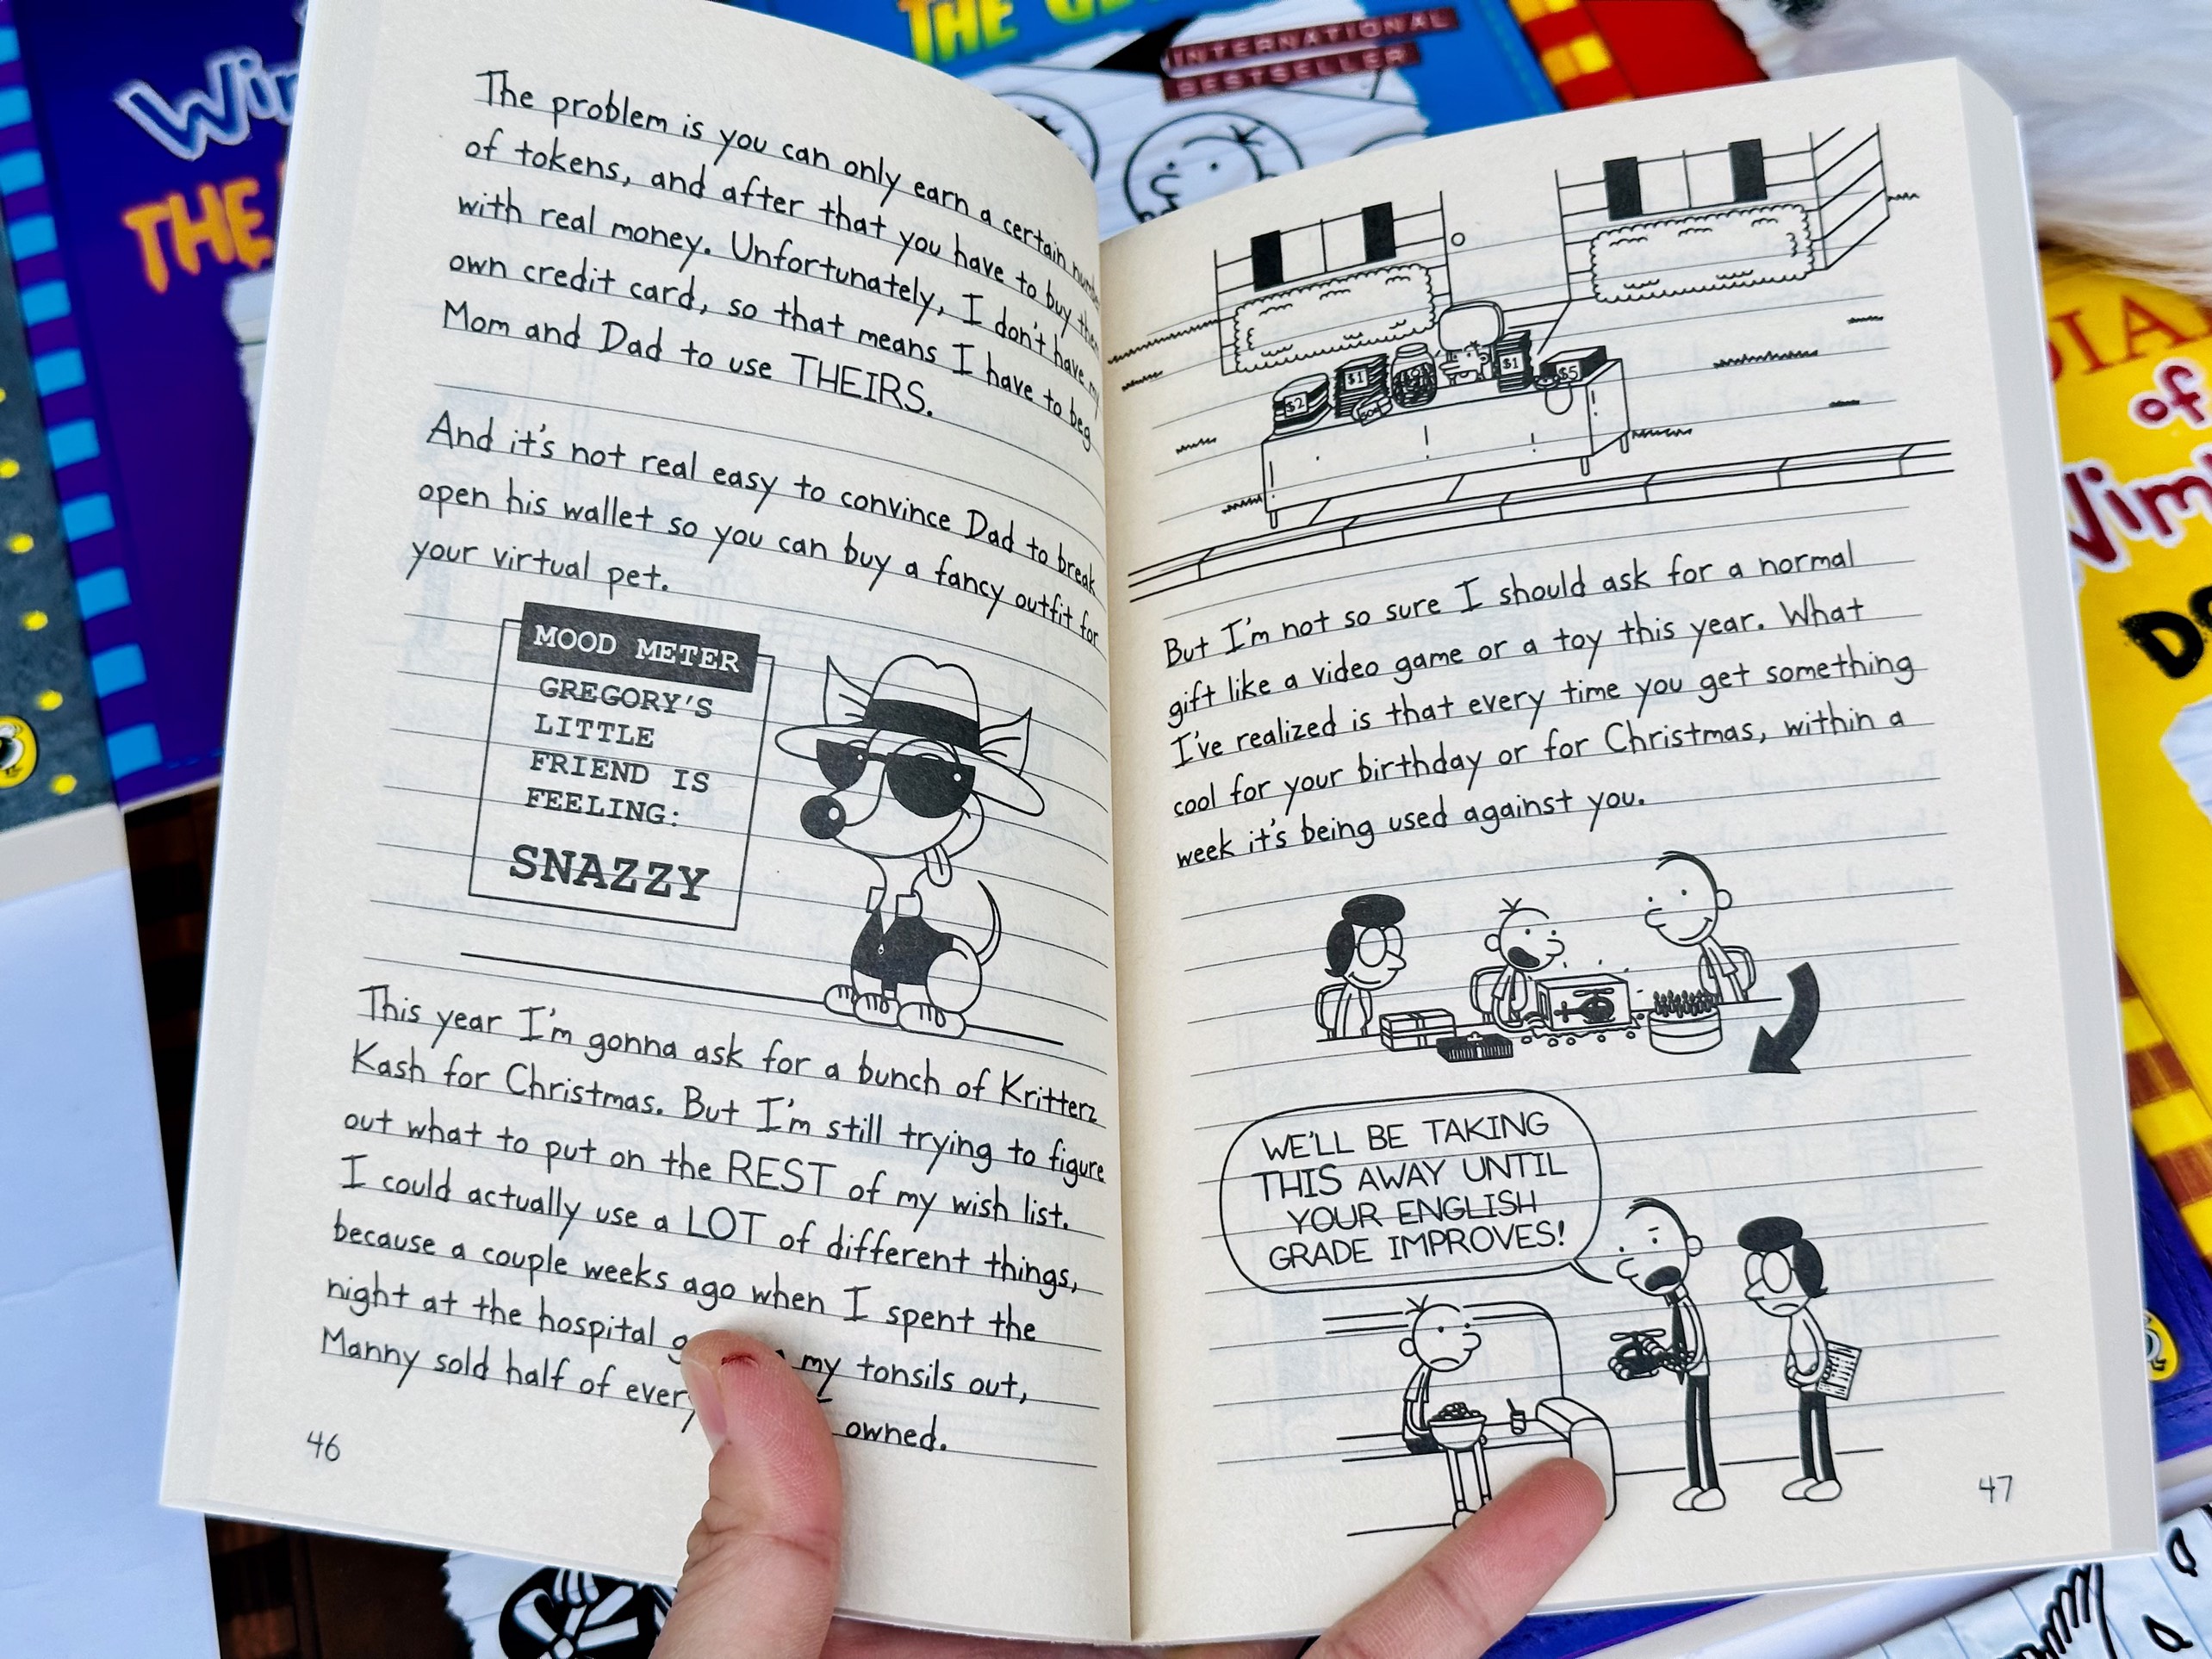 Wim
THE
THE
INTERNATIONAL
BESTSELLER
The problem is you can only earn a certain
of tokens, and after that you have to buy
with real money. Unfortunately, I don't have my
own credit card, so that means I have to beg
Mom and Dad to use THEIRS.
And it's not real easy to convince Dad to break
open his wallet so you can buy a fancy outfit for
your virtual pet.
MOOD METER
GREGORY'S
LITTLE
FRIEND IS
FEELING:
SNAZZY
This year I'm gonna ask for a bunch of Kritterz
Kash for Christmas. But I'm still trying to figure
out what to put on the REST of my wish list.
I could actually use a LOT of different things,
because a couple weeks ago when I spent the
night at the hospital my tonsils out,
Manny sold half of owned.
46
$2
$1
50¢
$1
$5
But I'm not so sure I should ask for a normal
gift like a video game or a toy this year. What
I've realized is that every time you get something
cool for your birthday or for Christmas, within a
week it's being used against you.
WE'LL BE TAKING
THIS AWAY UNTIL
YOUR ENGLISH
GRADE IMPROVES!
47
of